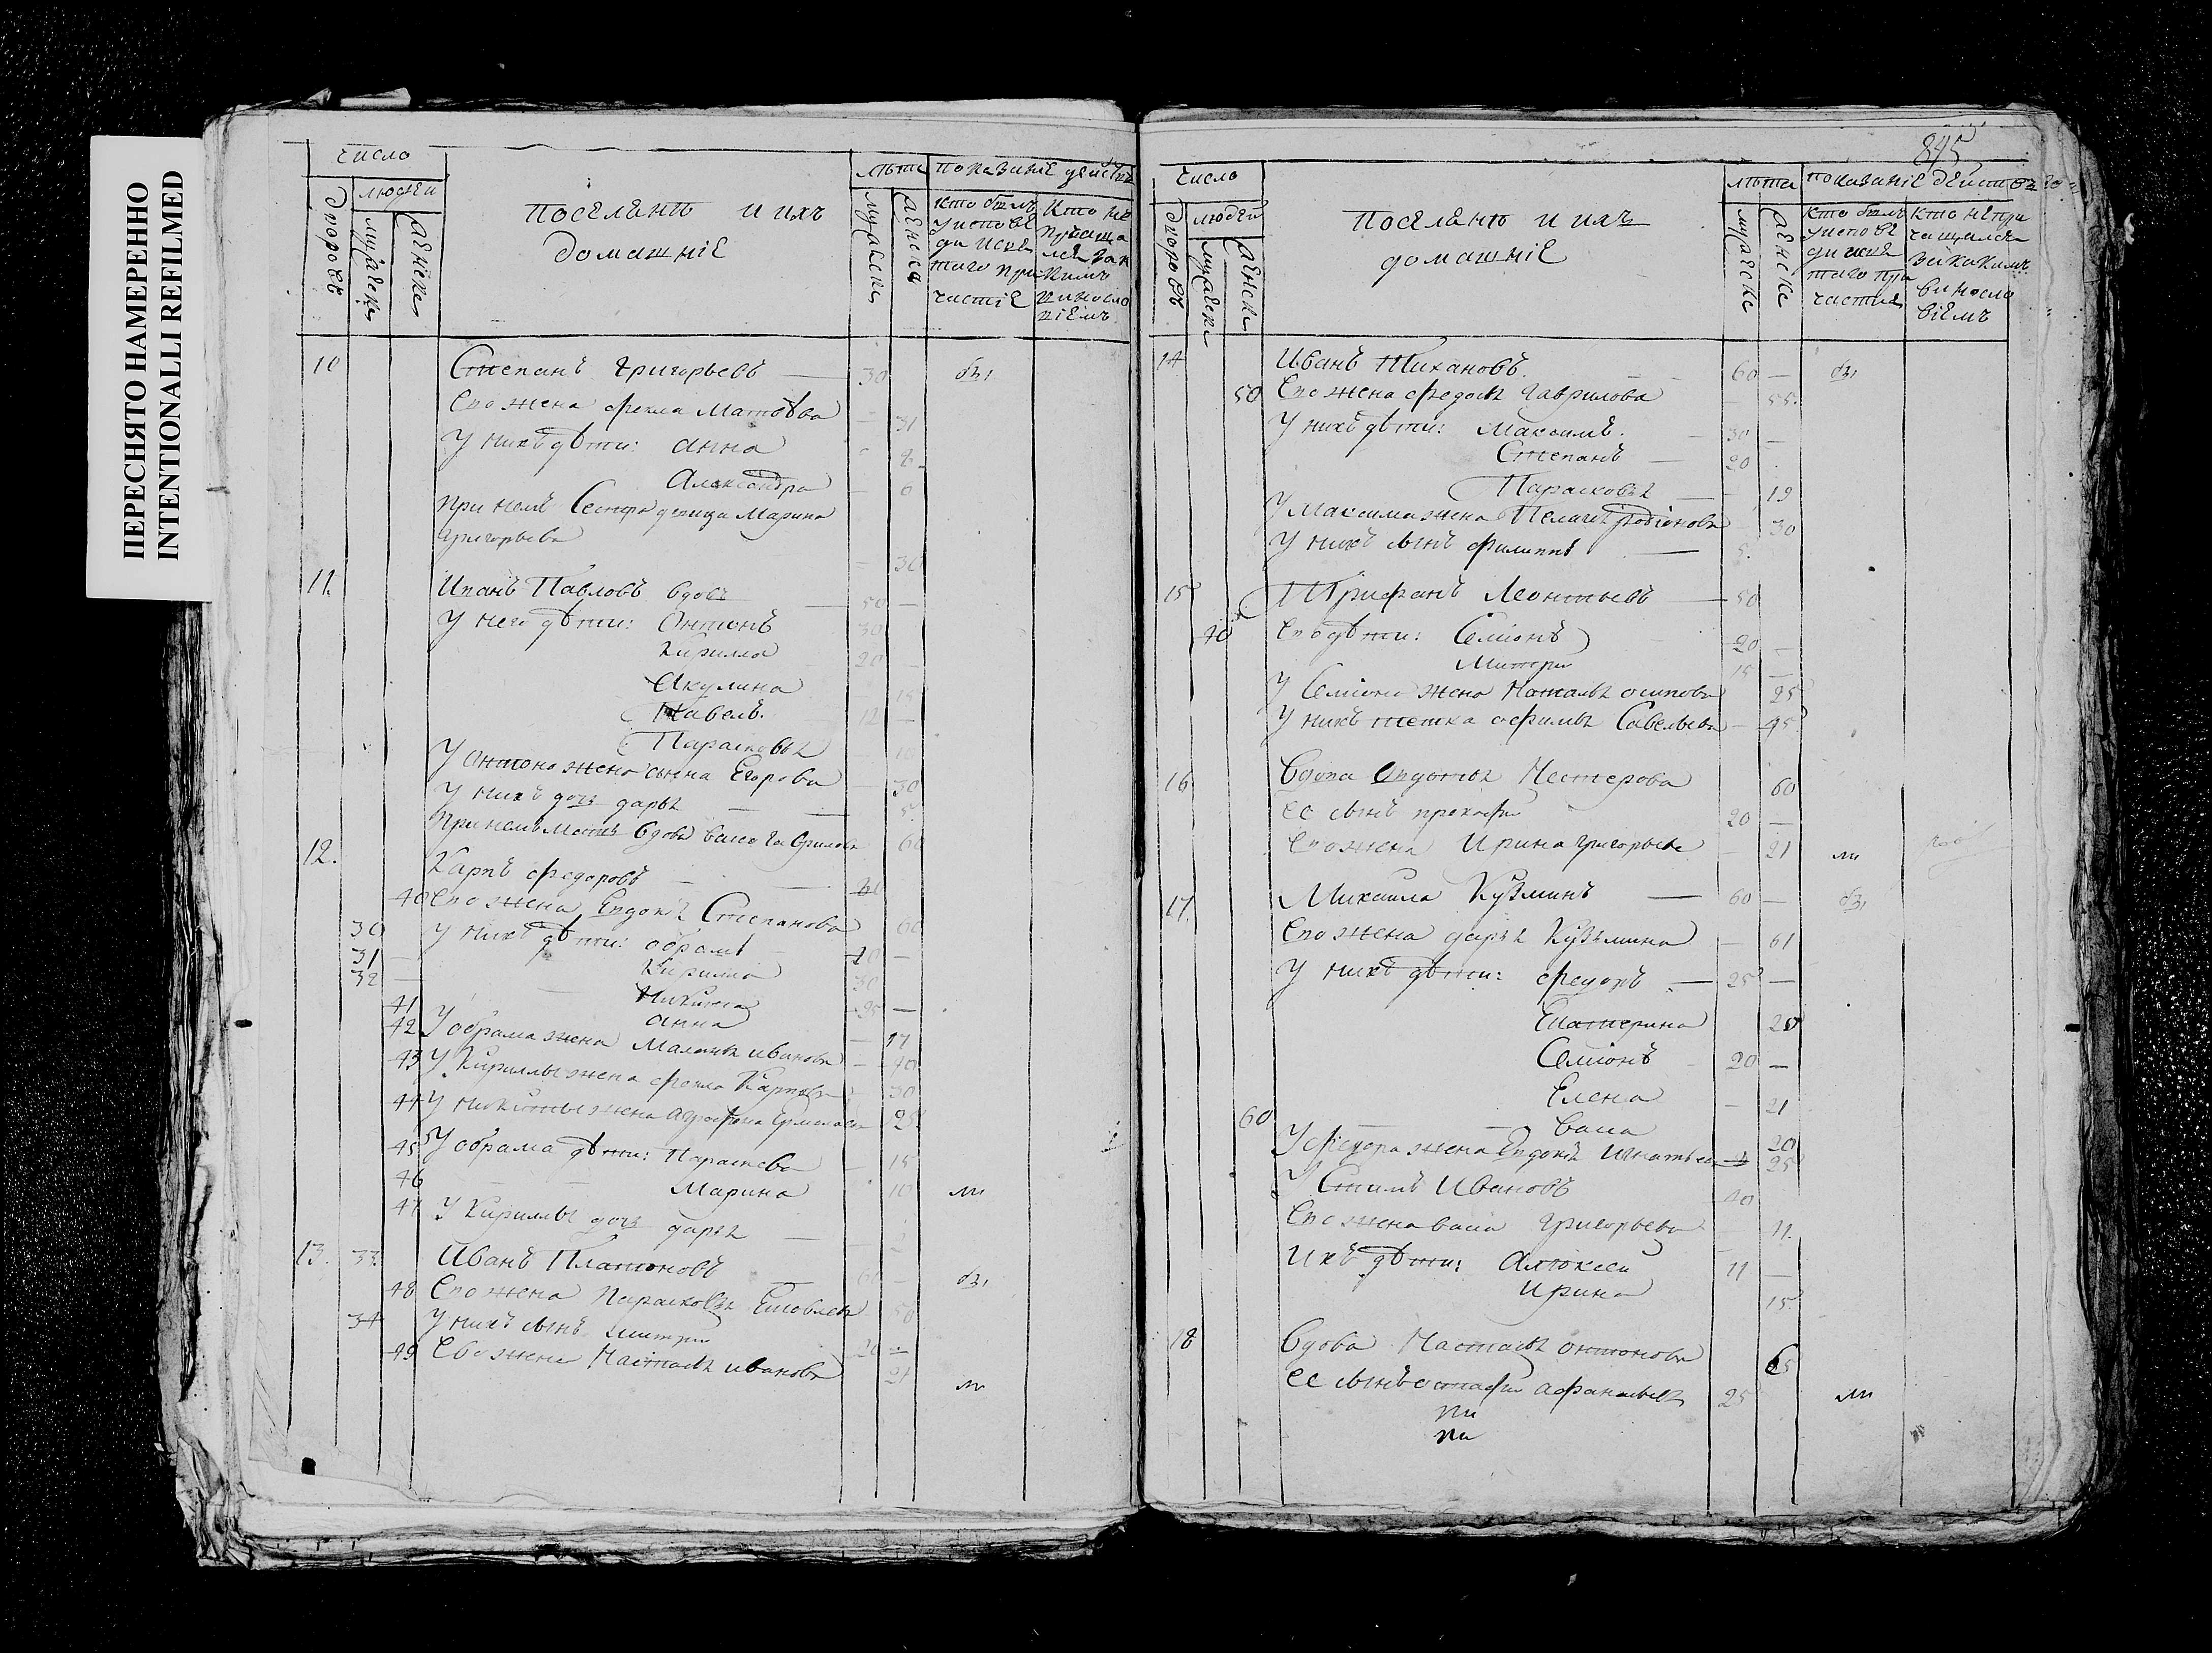 ПЕРЕСНЯТО НАМЕРЕННО
INTENTIONALLI REFILMED
число
людей
дворовъ
мужеск
женска
поселяня и ихъ
домашніе
лѣта
мужеска
женска
показаніе дейст
кто былъ
у исповѣ
ди и свя
таго при
частіе
кто не
причаща
лся за
10 Степанъ Григорьевъ — 30 бы
Ево жена Фекла Матвѣева 31
У нихъ дѣти: Анна 8
Александра 6
При немъ Сестра девица Марина
Григорьева 30
11. Иванъ Павловъ вдовъ — 50 —
У него дѣти: Антонъ 30
Кирилла 20
Акулина 15
Павелъ. 12 —
Парасковья 10
У Антона жена Анна Егорова 30
У нихъ дочь Дарья — 5
При немъ мать вдова Васса Гаврилова 60
12. Карпъ Федоровъ — 60
40 Ево жена Евдокія Степанова 60
30 У нихъ дѣти: Обрамъ 40 —
31 — Кирилла 30
32 — Никита 25 —
41 Анна 17
42 У Обрама жена Маланья Иванова — 40
43 У Кириллы жена Фекла Карпова 30
44 У Никиты жена Аграфена Ермолаева 25
45 У Обрама дѣти: Параскева 15
46 Марина 10 ли
47 У Кириллы дочь Дарья —
13. 33. Иванъ Платоновъ — 60 — бы
48 Ево жена Парасковья Яковлева 50
34 У нихъ сынъ Дмитри 20 —
49 Ево жена Настасья Иванова 21 ли
845
число
людей
дворовъ
мужеск
женска
поселяня и ихъ
домашніе
лѣта
мужеска
женска
показаніе действ
кто былъ
у исповѣ
ди и свя
таго при
частія
кто не при
чащался
за какимъ
виносло
віемъ
14 Иванъ Тихановъ. 60 — бы
50 Ево жена Федосья Гаврилова 55.
У нихъ дѣти: Максимъ. 30 —
Степанъ — 20
Парасковья — 19
У Максима жена Пелагея Родіонова 30
У нихъ сынъ Филиппъ — 5.
15 Трифанъ Леонтьевъ — 50
40 Ево дѣти: Семіонъ 20 —
Митри 15 —
У Семіона жена Наталья Осипова 25
У нихъ тетка Афимья Савельева — 45
16 Вдова Авдотья Нестерова 60
ее сынъ Прокофи 20 —
Ево жена Ирина Григорьева — 21 ли
17. Михаила Кузминъ — 60 — бы
Ево жена Дарья Кузьмина — 61
У нихъ дѣти: Федоръ — 25 —
Катерина 20
Семіонъ 20 —
Елена — 21
60 Васа 20
У Федора жена Евдокія Игнатьева 25
У Иванова 40
Ево жена Васа Григорьева 41.
Ихъ дѣти: Алексей 11 —
Ирина 15.
18 Вдова Настасья Антонова 65
ее сынъ Остафи Афанасьевъ 25 ли